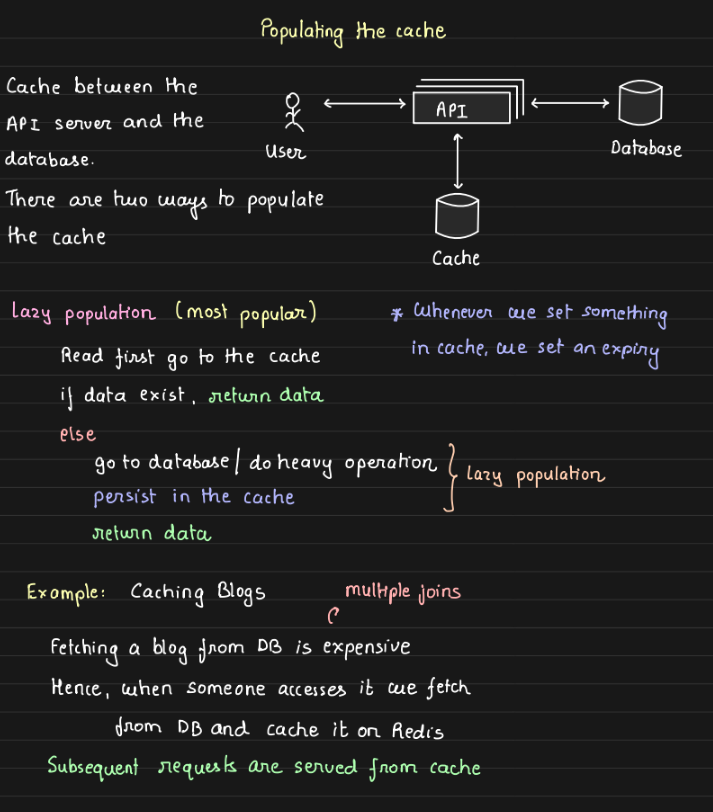 Populating the cache
Cache between the
API server and the
database.
API
User
Database
There are two ways to populate
the cache
Cache
lazy population (most popular)
* Whenever we set something
in cache, we set an expiry
Read first go to the cache
if data exist, return data
else
go to database / do heavy operation
persist in the cache
lazy population
return data
Example: Caching Blogs
multiple joins
Fetching a blog from DB is expensive
Hence, when someone accesses it we fetch
from DB and cache it on Redis
Subsequent requests are served from cache